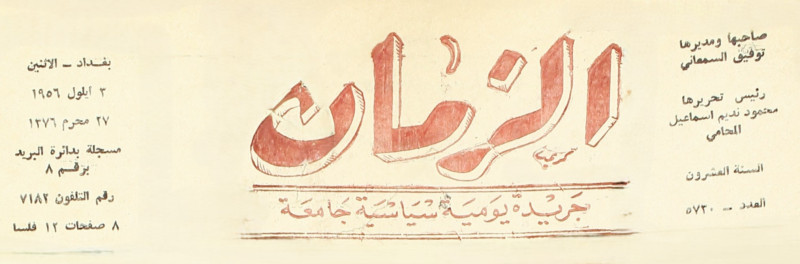 صاحبها ومديرها
توفيق السمعاني
رئيس تحريرها
محمود نديم اسماعيل
المحامي
السنة العشرون
العدد – ٥٧٣٠
الزمان
جريدة يومية سياسية جامعة
بغداد – الاثنين
٣ ايلول ١٩٥٦
٢٧ محرم ١٣٧٦
مسجلة بدائرة البريد
برقم ٨
رقم التلفون ٧١٨٢
٨ صفحات ١٢ فلسا